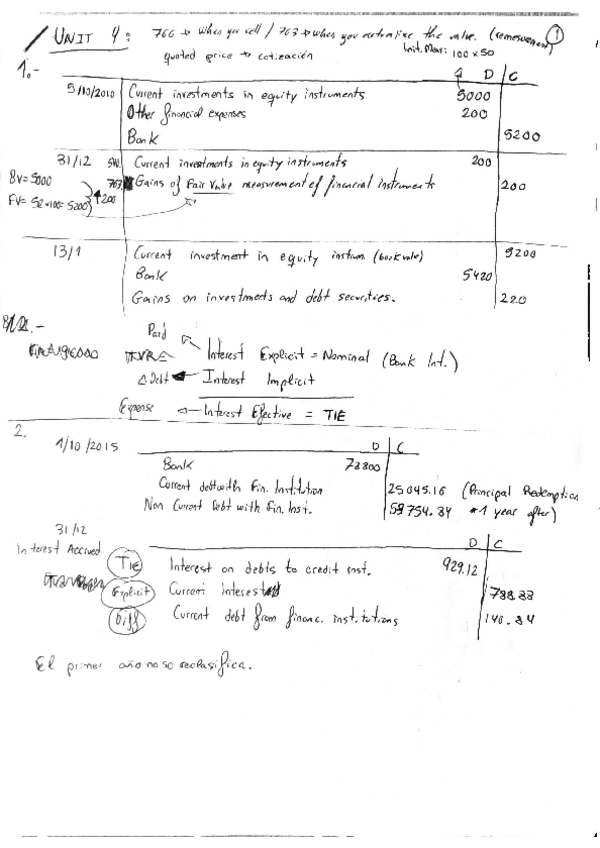 UNIT 4: 766 → When you sell / 763 → when you the value. (remeasurement) 1
quoted price → cotización Init. Meas: 100 x 50
1.-
D C
5/10/2010 Current investments in equity instruments 5000
Other financial expenses 200
Bank 5200
31/12 Current investments in equity instruments 200
BV = 5000 763 Gains of Fair Value measurement of financial instruments 200
FV = 52*100 = 5200 200
13/1 Current investment in equity instrum. (book value) 5200
Bank 5420
Gains on investments and debt securities. 220
Paid
Interest Explicit = Nominal (Bank Int.)
Δ Debt Interest Implicit
Expense Interest Effective = TIE
2.
1/10/2015 D C
Bank
Current debt with Fin. Institution 25045.16 (Principal Redemption
Non Current Debt with Fin. Inst. 1 year after)
31/12 D C
Interest Accrued TIE Interest on debts to credit inst. 929.12
Explicit Current interest
Diff Current debt from financ. institutions
El primer año no se reclasifica.